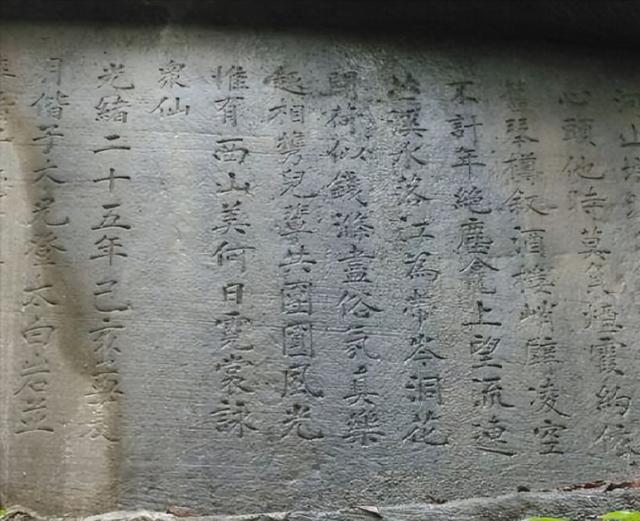 山
心頭他時莫負煙霞約依
舊琴樽叙酒樓峭壁凌空
不計年絶塵龕上望流連
苎溪水落江為帶岑洞花
開荷似錢滌盡俗氛真樂
趣相攜兒輩共團圓風光
惟有西山美何日霓裳詠
衆仙
光緒二十五年己亥孟夏
月偕子大兄登太白岩並